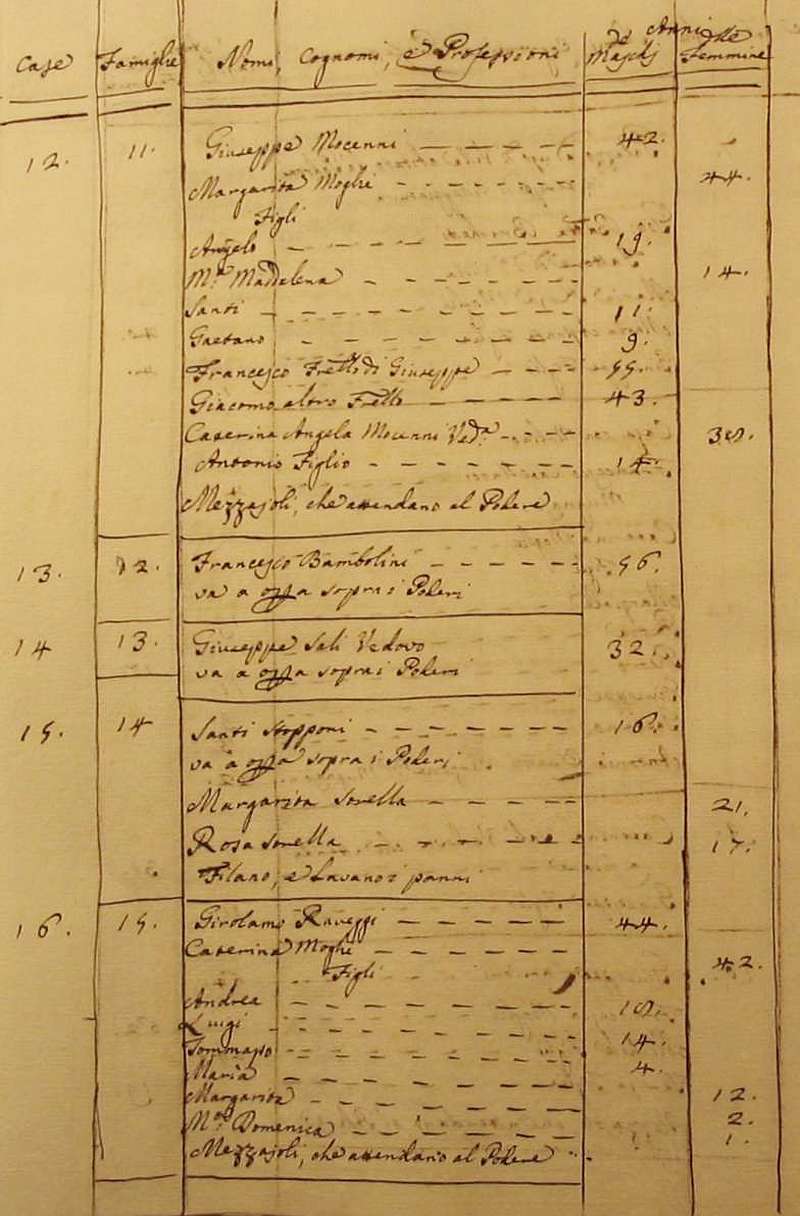 Anni
Case Famiglie Nomi, Cognomi, è Professioni de Maschj delle Femmine
12. 11. Giuseppe Mocenni 42.
Margarita Moglie 44.
Figli
Angelo 19.
M.a Maddalena 14.
Santi 11.
Gaetano 9.
Francesco Frello di Giuseppe 55.
Giacomo altro Frello 43.
Caterina Angela Mocenni Ved.a
Antonio Figlio 14
Mezzajoli, che attendano al Podere
13. 12. Francesco Bambolini 56.
va a opra sopra i Poderi
14 13. Giuseppe Sali Vedovo 32.
va a opra sopra i Poderi
15. 14 Santi Stopponi 16.
va a opra sopra i Poderi
Margarita Sorella 21.
Rosa Sorella 17.
Filano, e Lavano i panni
16. 15. Girolamo Raveggi 44.
Caterina Moglie 42.
Figli
Andrea
Luigi 14.
Tommaso 4.
Maria 12.
Margarita 2.
M.a Domenica 1.
Mezzajoli, che attendano al Podere